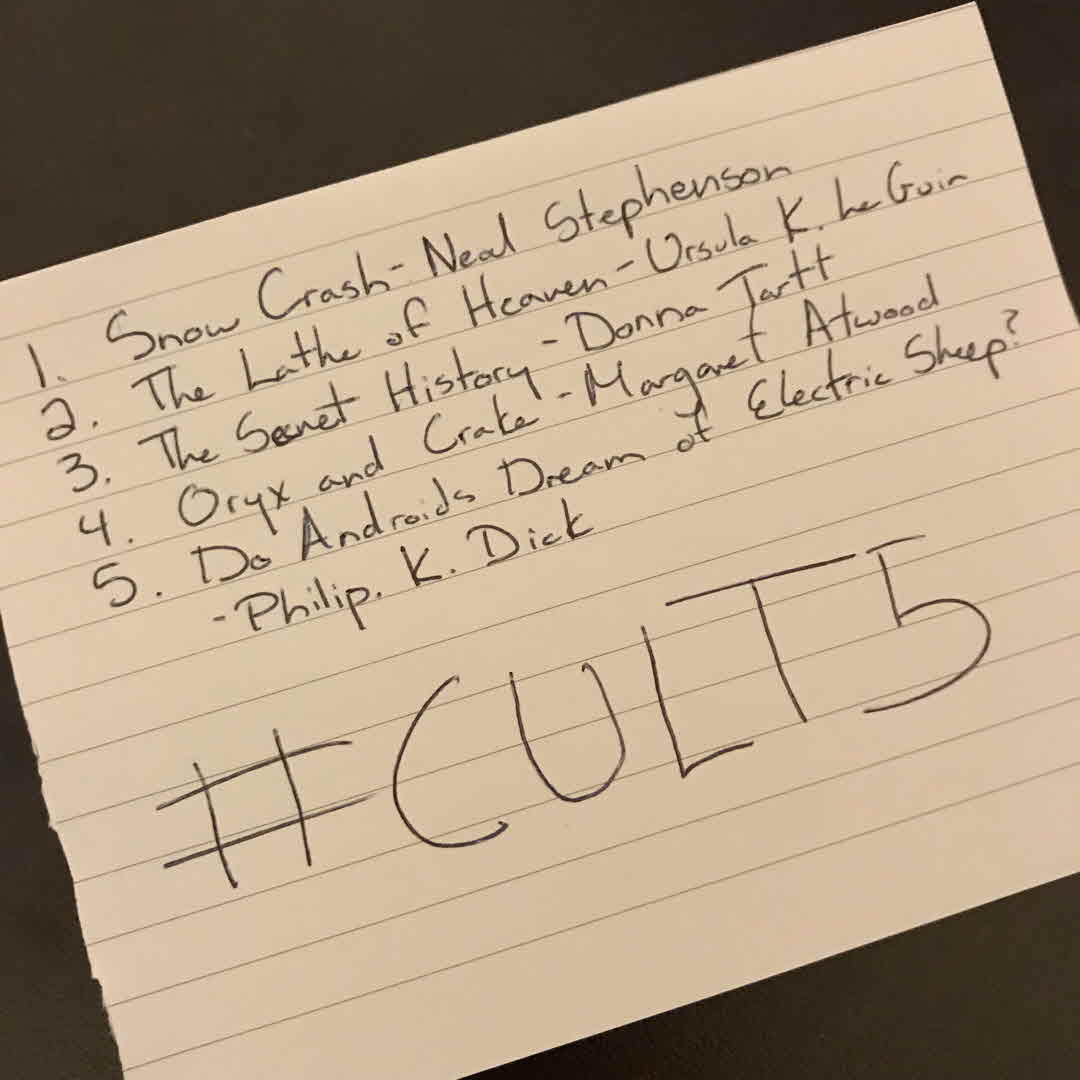 1. Snow Crash - Neal Stephenson
2. The Lathe of Heaven - Ursula K. Le Guin
3. The Secret History - Donna Tartt
4. Oryx and Crake - Margaret Atwood
5. Do Androids Dream of Electric Sheep?
- Philip. K. Dick
#CULT5